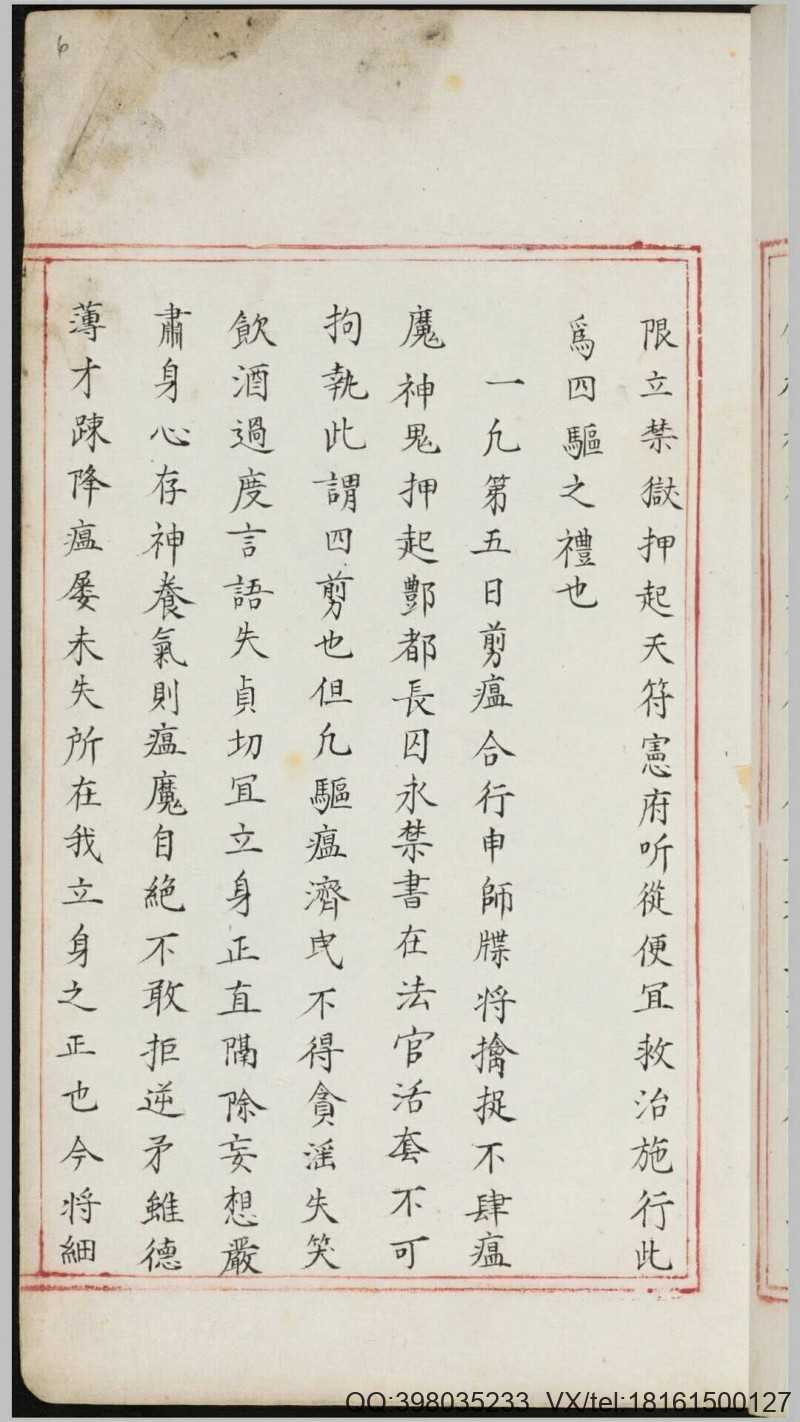 6
限立禁獄押起天符憲府听從便冝救治施行此
爲四驅之禮也
一凢第五日剪瘟合行申師牒将擒捉不肆瘟
魔神鬼押起酆都長囚永禁書在法官活套不可
拘執此謂四剪也但凢驅瘟濟民不得貪滛失笑
飲酒過度言語失貞切冝立身正直隔除妄想嚴
肅身心存神養氣則瘟魔自絶不敢拒逆矛雖德
薄才踈降瘟屡未失所在我立身之正也今将細
QQ:398035233 VX/tel:18161500127